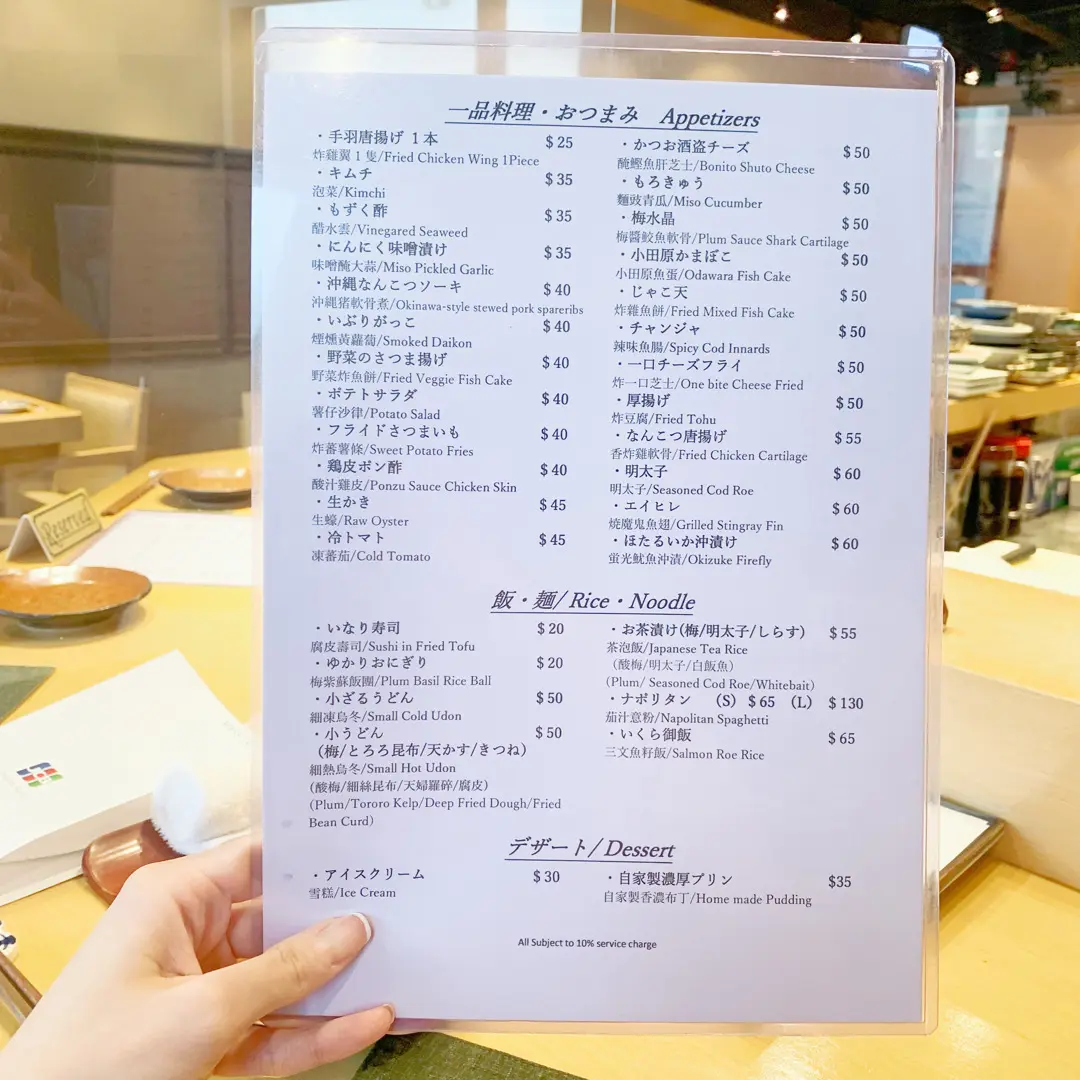 一品料理・おつまみ Appetizers
・手羽唐揚げ 1本 $25
炸雞翼1隻/Fried Chicken Wing 1Piece
・キムチ $35
泡菜/Kimchi
・もずく酢 $35
醋水雲/Vinegared Seaweed
・にんにく味噌漬け $35
味噌醃大蒜/Miso Pickled Garlic
・沖縄なんこつソーキ $40
沖繩猪軟骨煮/Okinawa-style stewed pork spareribs
・いぶりがっこ $40
煙燻黃蘿蔔/Smoked Daikon
・野菜のさつま揚げ $40
野菜炸魚餅/Fried Veggie Fish Cake
・ポテトサラダ $40
薯仔沙律/Potato Salad
・フライドさつまいも $40
炸蕃薯條/Sweet Potato Fries
・鶏皮ポン酢 $40
酸汁雞皮/Ponzu Sauce Chicken Skin
・生かき $45
生蠔/Raw Oyster
・冷トマト $45
凍蕃茄/Cold Tomato
・かつお酒盗チーズ $50
醃鰹魚肝芝士/Bonito Shuto Cheese
・もろきゅう $50
麵豉青瓜/Miso Cucumber
・梅水晶 $50
梅醬鮫魚軟骨/Plum Sauce Shark Cartilage
・小田原かまぼこ $50
小田原魚蛋/Odawara Fish Cake
・じゃこ天 $50
炸雜魚餅/Fried Mixed Fish Cake
・チャンジャ $50
辣味魚腸/Spicy Cod Innards
・一口チーズフライ $50
炸一口芝士/One bite Cheese Fried
・厚揚げ $50
炸豆腐/Fried Tohu
・なんこつ唐揚げ $55
香炸雞軟骨/Fried Chicken Cartilage
・明太子 $60
明太子/Seasoned Cod Roe
・エイヒレ $60
燒魔鬼魚翅/Grilled Stingray Fin
・ほたるいか沖漬け $60
蛍光魷魚沖漬/Okizuke Firefly
飯・麺/ Rice・Noodle
・いなり寿司 $20
腐皮壽司/Sushi in Fried Tofu
・ゆかりおにぎり $20
梅紫蘇飯團/Plum Basil Rice Ball
・小ざるうどん $50
細凍烏冬/Small Cold Udon
・小うどん $50
（梅/とろろ昆布/天かす/きつね）
細熱烏冬/Small Hot Udon
(酸梅/細絲昆布/天婦羅碎/腐皮)
(Plum/Tororo Kelp/Deep Fried Dough/Fried
Bean Curd)
・お茶漬け(梅/明太子/しらす) $55
茶泡飯/Japanese Tea Rice
（酸梅/明太子/白飯魚）
(Plum/ Seasoned Cod Roe/Whitebait)
・ナポリタン （S）$65 （L） $130
茄汁意粉/Napolitan Spaghetti
・いくら御飯 $65
三文魚籽飯/Salmon Roe Rice
デザート/ Dessert
・アイスクリーム $30
雪糕/Ice Cream
・自家製濃厚プリン $35
自家製香濃布丁/Home made Pudding
All Subject to 10% service charge
Reserved